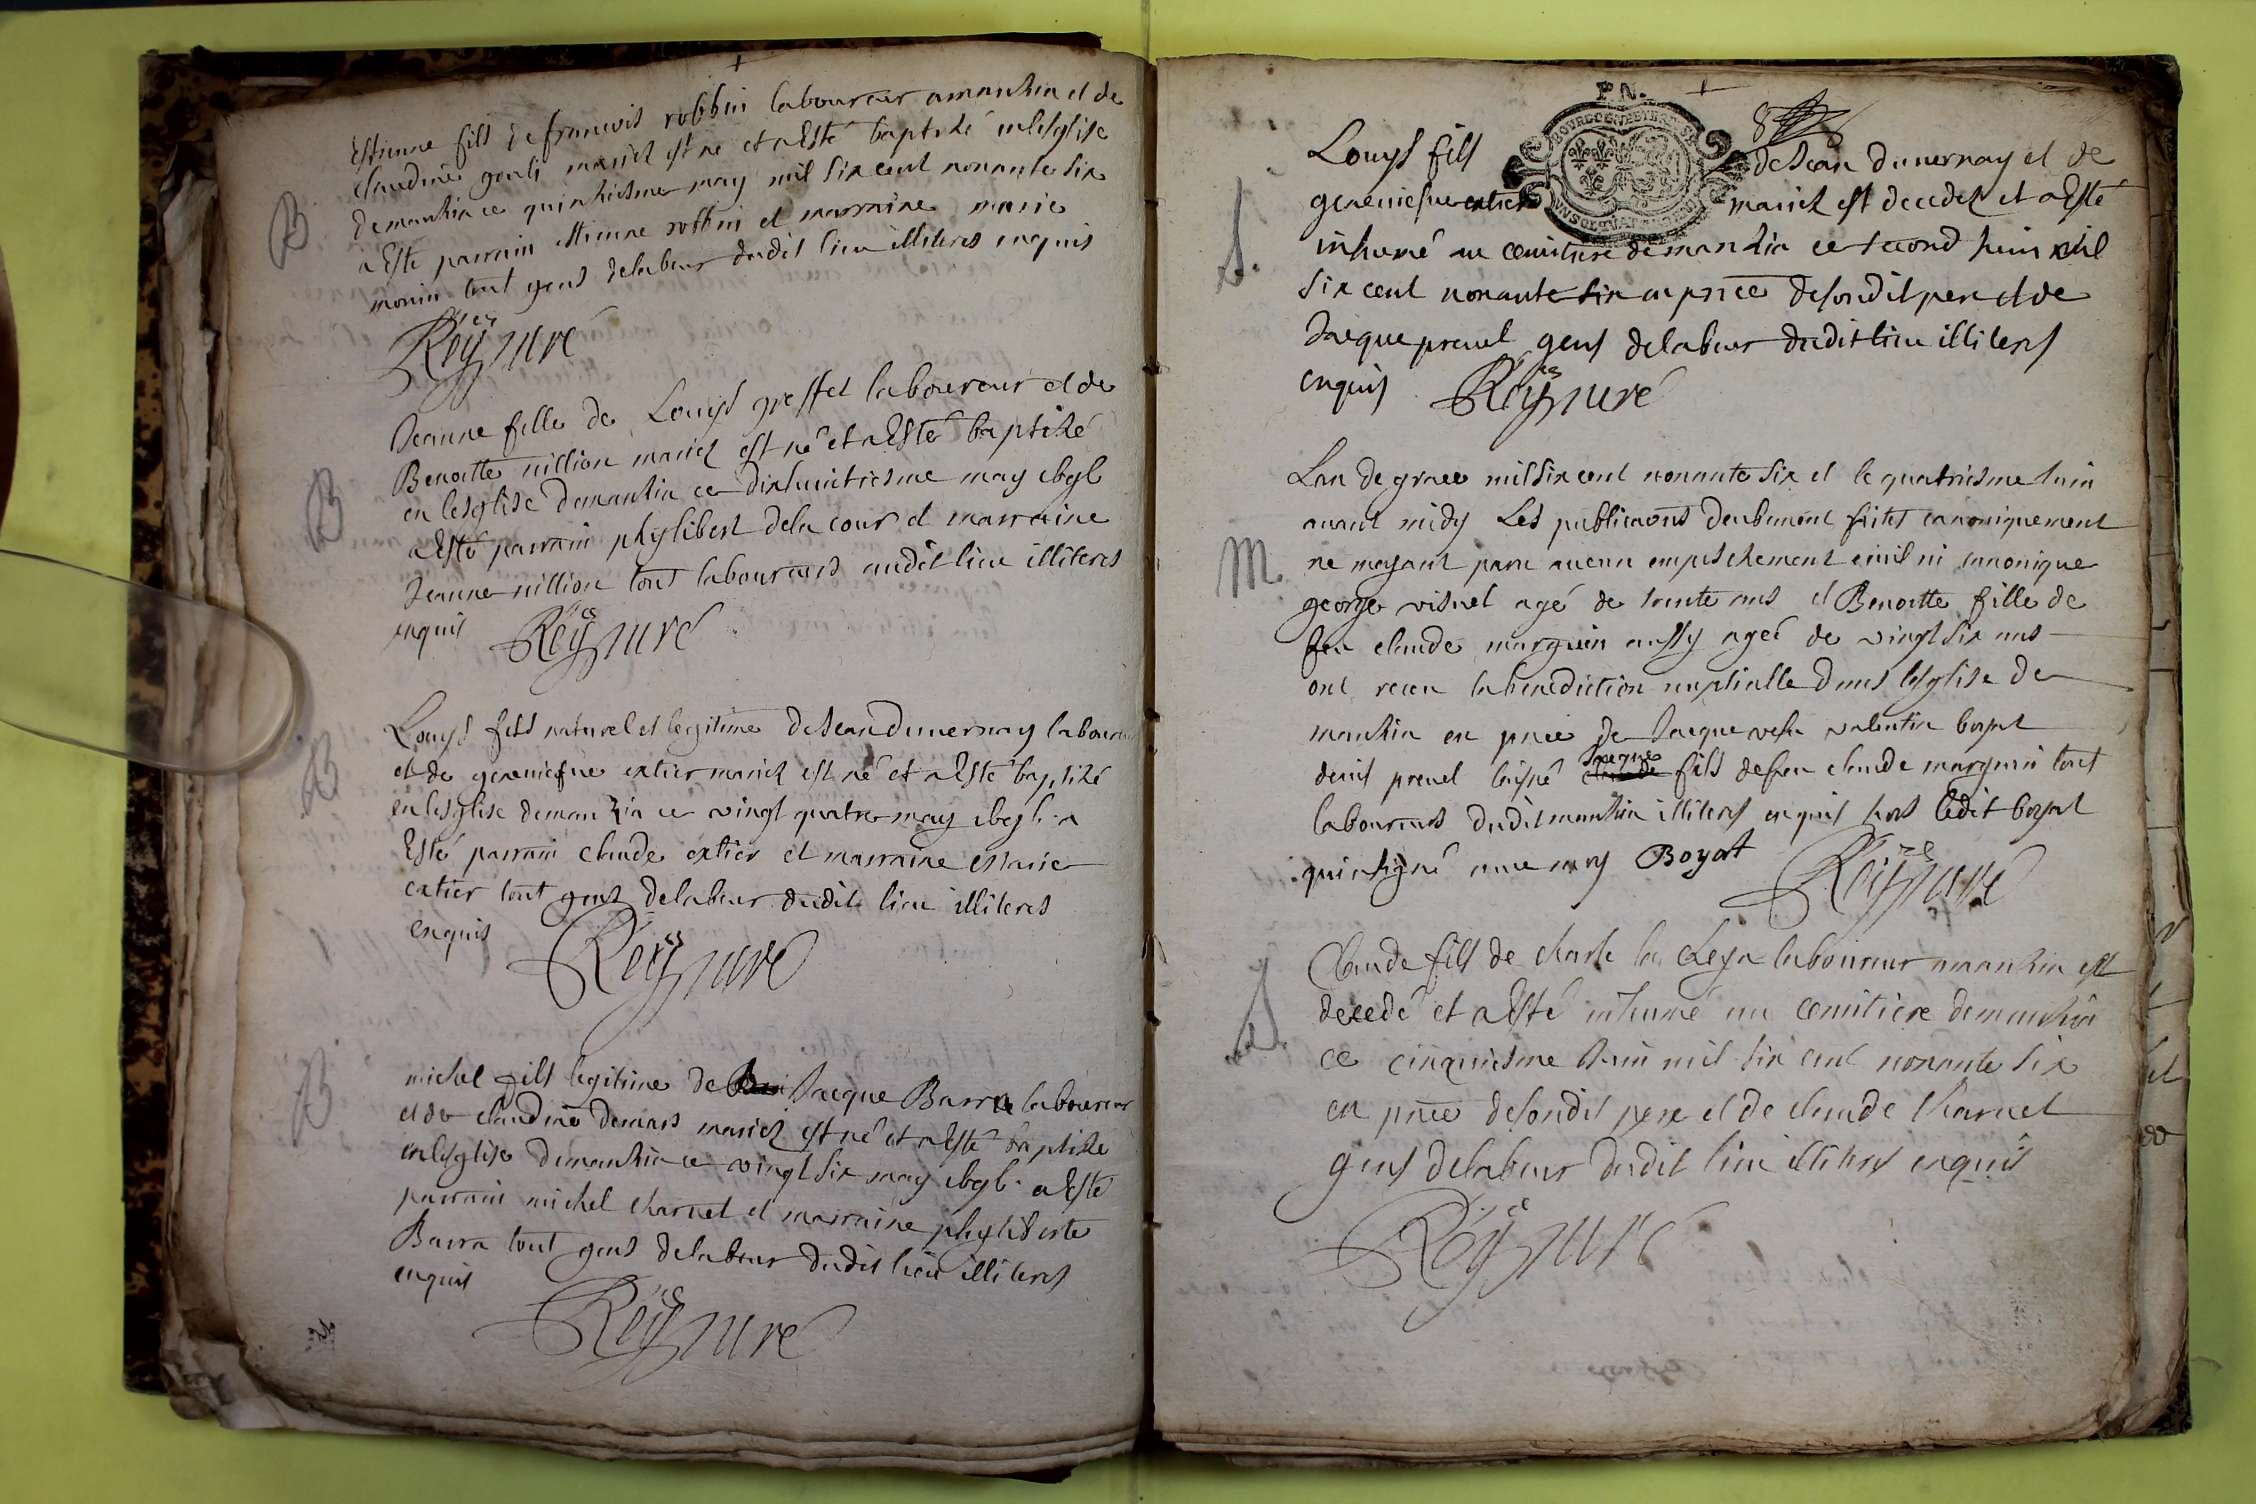 Estienne fils de francois robbin laboureur a manthia et de
claudine gonli mariez est né et a Esté baptizé en lesglise
de manthia ce quinziesme may mil six cent nonante six
a Esté parrain estienne robbin et marraine marie
monin tout gens delabeur dudit lieu illiteres enquis
B
Rey curé
Jeanne fille de Louys greffet laboureur et de
Benoitte million mariez est né et a Esté baptizé
en lesglise demanthia ce dixhuictiesme may
a Esté parrain phylibert dela cour et marraine
Jeanne million tous laboureurs audit lieu illiteres
enquis
B
Rey curé
Louys fils naturel et legitime de Jean duvernay laboureur
et de geneviefve extier mariez est né et a Esté baptizé
en lesglise demanthia ce vingt quatre may a
Esté parrain claude extier et marraine
extier tout gens delabeur dudit lieu illiteres
enquis
B
Rey curé
michel fils legitime de Jacque Barra laboureur
et de claudine demars mariez est né et a Esté baptizé
en lesglise demanthia ce vingt six may a Esté
parrain michel charvet et marraine phyliberte
Barra tout gens delabeur dudit lieu illiteres
enquis
B
Rey curé
P N.
BOURGOGNE
8
Louys fils de Jean duvernay et de
geneviefve extier mariez est decedez et a Esté
inhumé au cemitiere demanthia ce second Juin mil
six cent nonante six en pnce desondit pere et de
Jacque prevel gens delabeur dudit lieu illiteres
enquis Rey curé
S.
Lan de grace mil six cent nonante six et le quatriesme Juin
avant midy Les publicaons deubment faites canoniquement
ne mayant paru aucun empeschement civil ni canonique
george visnel agé de trente ans et Benoitte fille de
feu claude marguin aussy agéé de vingt six ans
ont receu la benediction nuptialle dans lesglise de
manthia en pnce de Jacque valentin boyat
denis prevel laisné Jacque fils defeu claude marguin tout
laboureurs dudit manthia illiteres enquis hors ledit boyat
qui a signé avec moy Boyat
M
Rey curé
Claude fils de charle la laboureur a manthia est
decedé et a Esté inhumé au cemitiere demanthia
ce cinquiesme Juin mil six cent nonante six
en pnce desondit pere et de claude charvet
gens delabeur dudit lieu illiteres enquis
S.
Rey curé